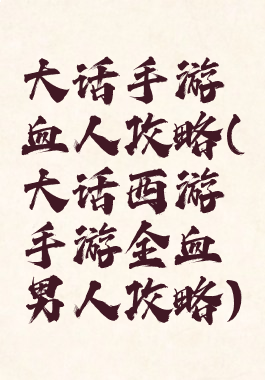 大话手游
血人攻略(
大话西游
手游全血
男人攻略)